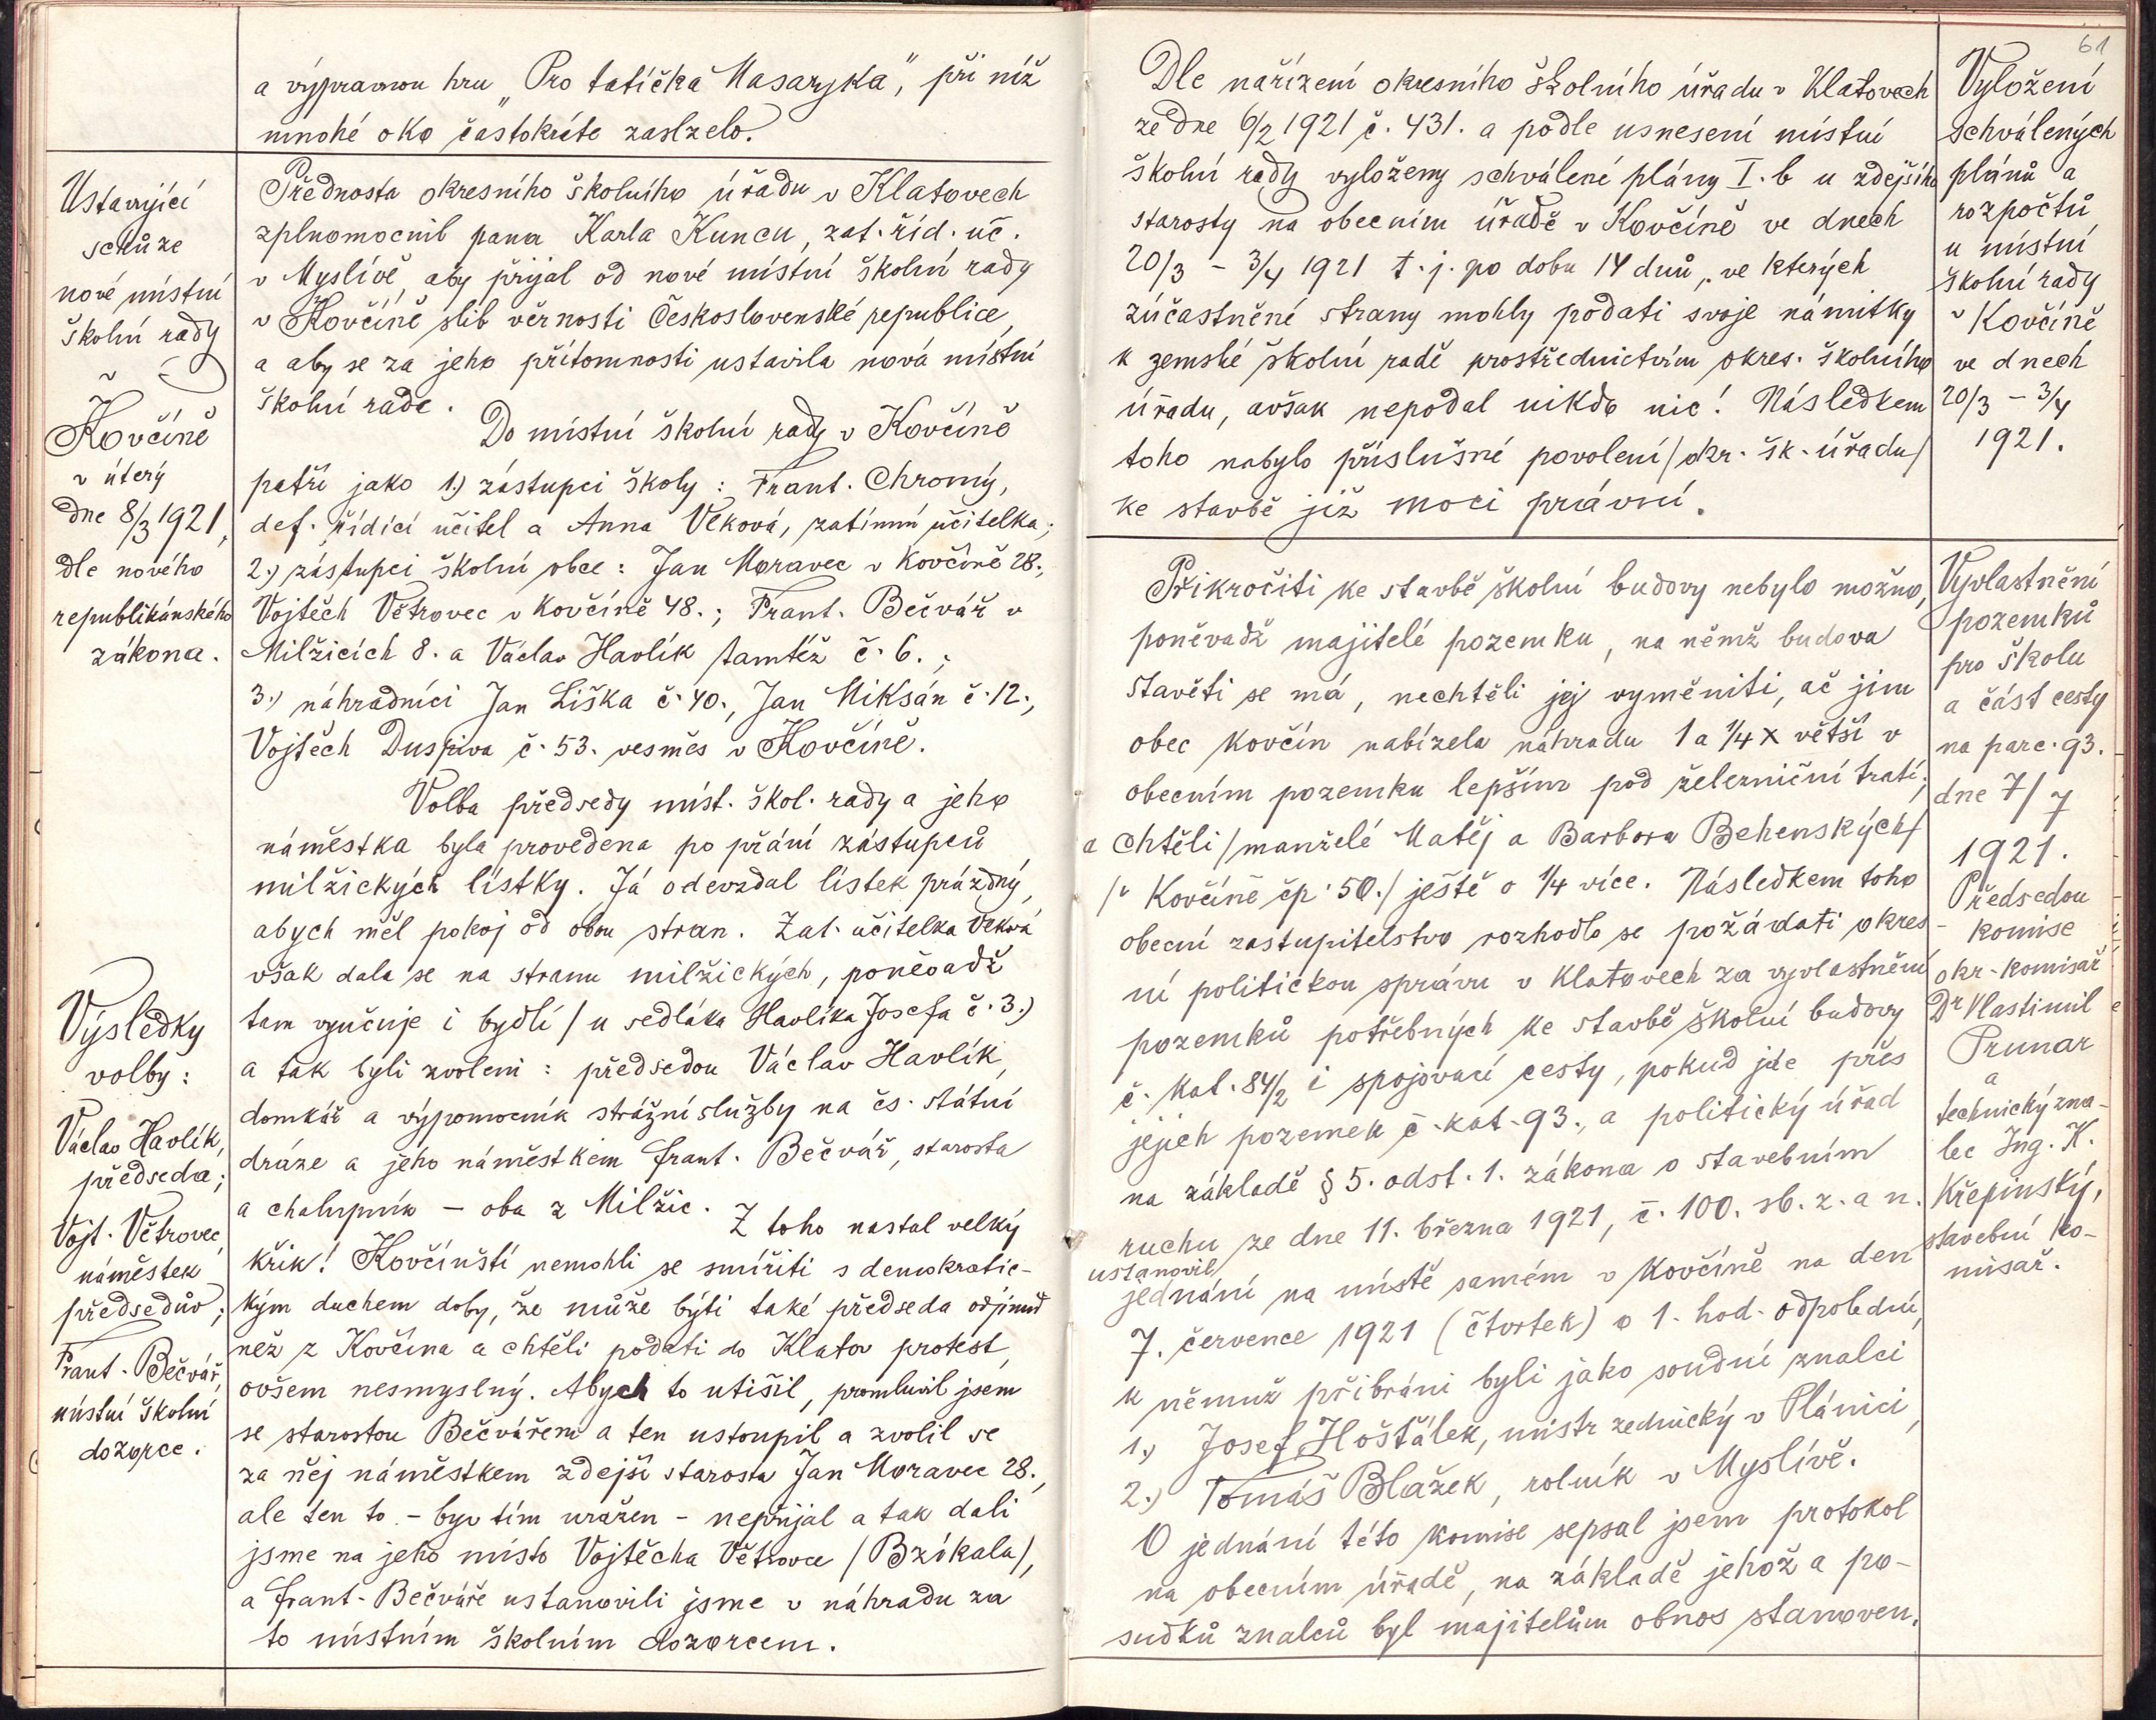 a výpravnou hru „Pro tatíčka Masaryka", při níž
mnohé oko častokráte zaslzelo.
Ustavující
schůze
nové místní
školní rady
v
Kovčíně
v úterý
dne 8/3 1921,
dle nového
republikánského
zákona.
Přednosta okresního školního úřadu v Klatovech
zplnomocnil pana Karla Kuncu, zat. říd. uč.
v Myslívě, aby přijal od nové místní školní rady
v Kovčíně slib věrnosti Československé republice,
a aby se za jeho přítomnosti ustavila nová místní
školní rada.
Do místní školní rady v Kovčíně
patří jako 1.) zástupci školy: Frant. Chromý,
def. řídící učitel a Anna Vlková, zatímní učitelka;
2.) zástupci školní obce: Jan Moravec v Kovčíně 28.,
Vojtěch Větrovec v Kovčíně 48.; Frant. Bečvář v
Milžicích 8. a Václav Havlík tamtéž č. 6.;
3.) náhradníci Jan Liška č. 40., Jan Miksán č. 12.,
Vojtěch Duspiva č. 53. vesměs v Kovčíně.
Volba předsedy míst. škol. rady a jeho
náměstka byla provedena po přání zástupců
milžických lístky. Já odevzdal lístek prázdný,
abych měl pokoj od obou stran. Zat. učitelka Vlková
však dala se na stranu milžických, poněvadž
tam vyučuje i bydlí / u sedláka Havlíka Josefa č. 3.)
a tak byli zvoleni: předsedou Václav Havlík,
domkář a výpomocník strážní služby na čs. státní
dráze a jeho náměstkem Frant. Bečvář, starosta
a chalupník – oba z Milžic. Z toho nastal velký
křik! Kovčínští nemohli se smířiti s demokratic-
kým duchem doby, že může býti také předseda odjinud
než z Kovčína a chtěli podati do Klatov protest,
ovšem nesmyslný. Abych to utišil, promluvil jsem
se starostou Bečvářem a ten ustoupil a zvolil se
za něj náměstkem zdejší starosta Jan Moravec 28.,
ale ten to – byv tím uražen – nepřijal a tak dali
jsme na jeho místo Vojtěcha Větrovce / Bzíkala /,
a Frant. Bečváře ustanovili jsme v náhradu za
to místním školním dozorcem.
Výsledky
volby:
Václav Havlík,
předseda;
Vojt. Větrovec,
náměstek
předsedův;
Frant. Bečvář,
místní školní
dozorce.
61
Dle nařízení okresního školního úřadu v Klatovech
ze dne 6/2 1921 č. 431. a podle usnesení místní
školní rady vyloženy schválené plány I. b u zdejšího
starosty na obecním úřadě v Kovčíně ve dnech
20/3 – 3/4 1921 t. j. po dobu 14 dnů, ve kterých
zúčastněné strany mohly podati svoje námitky
k zemské školní radě prostřednictvím okres. školního
úřadu, avšak nepodal nikdo nic! Následkem
toho nabylo příslušné povolení / okr. šk. úřadu /
ke stavbě již moci právní.
Vyložení
schválených
plánů a
rozpočtů
u místní
školní rady
v Kovčíně
ve dnech
20/3 – 3/4
1921.
Přikročiti ke stavbě školní budovy nebylo možno,
poněvadž majitelé pozemku, na němž budova
stavěti se má, nechtěli jej vyměniti, ač jim
obec Kovčín nabízela náhradu 1 a 1/4 x větší v
obecním pozemku lepším pod železniční tratí;
a chtěli / manželé Matěj a Barbora Behenských /
/ v Kovčíně čp. 50. / ještě o 1/4 více. Následkem toho
obecní zastupitelstvo rozhodlo se požádati okres-
ní politickou správu v Klatovech za vyvlastnění
pozemků potřebných ke stavbě školní budovy
č. kat. 84/2 i spojovací cesty, pokud jde přes
jejich pozemek č. kat. 93., a politický úřad
na základě § 5. odst. 1. zákona o stavebním
ruchu ze dne 11. března 1921, č. 100. sb. z. a n.
ustanovil
jednání na místě samém v Kovčíně na den
7. července 1921 (čtvrtek) o 1. hod. odpolední,
k němuž přibráni byli jako soudní znalci
1.) Josef Hošťálek, mistr zednický v Plánici,
2.) Tomáš Blažek, rolník v Myslívě.
O jednání této komise sepsal jsem protokol
na obecním úřadě, na základě jehož a po-
sudků znalců byl majitelům obnos stanoven.
Vyvlastnění
pozemků
pro školu
a část cesty
na parc. 93.
dne 7/7
1921.
Předsedou
komise
okr. komisař
Dr Vlastimil
Prunar
a
technický zna-
lec Ing. K.
Křepinský,
stavební ko-
misař.